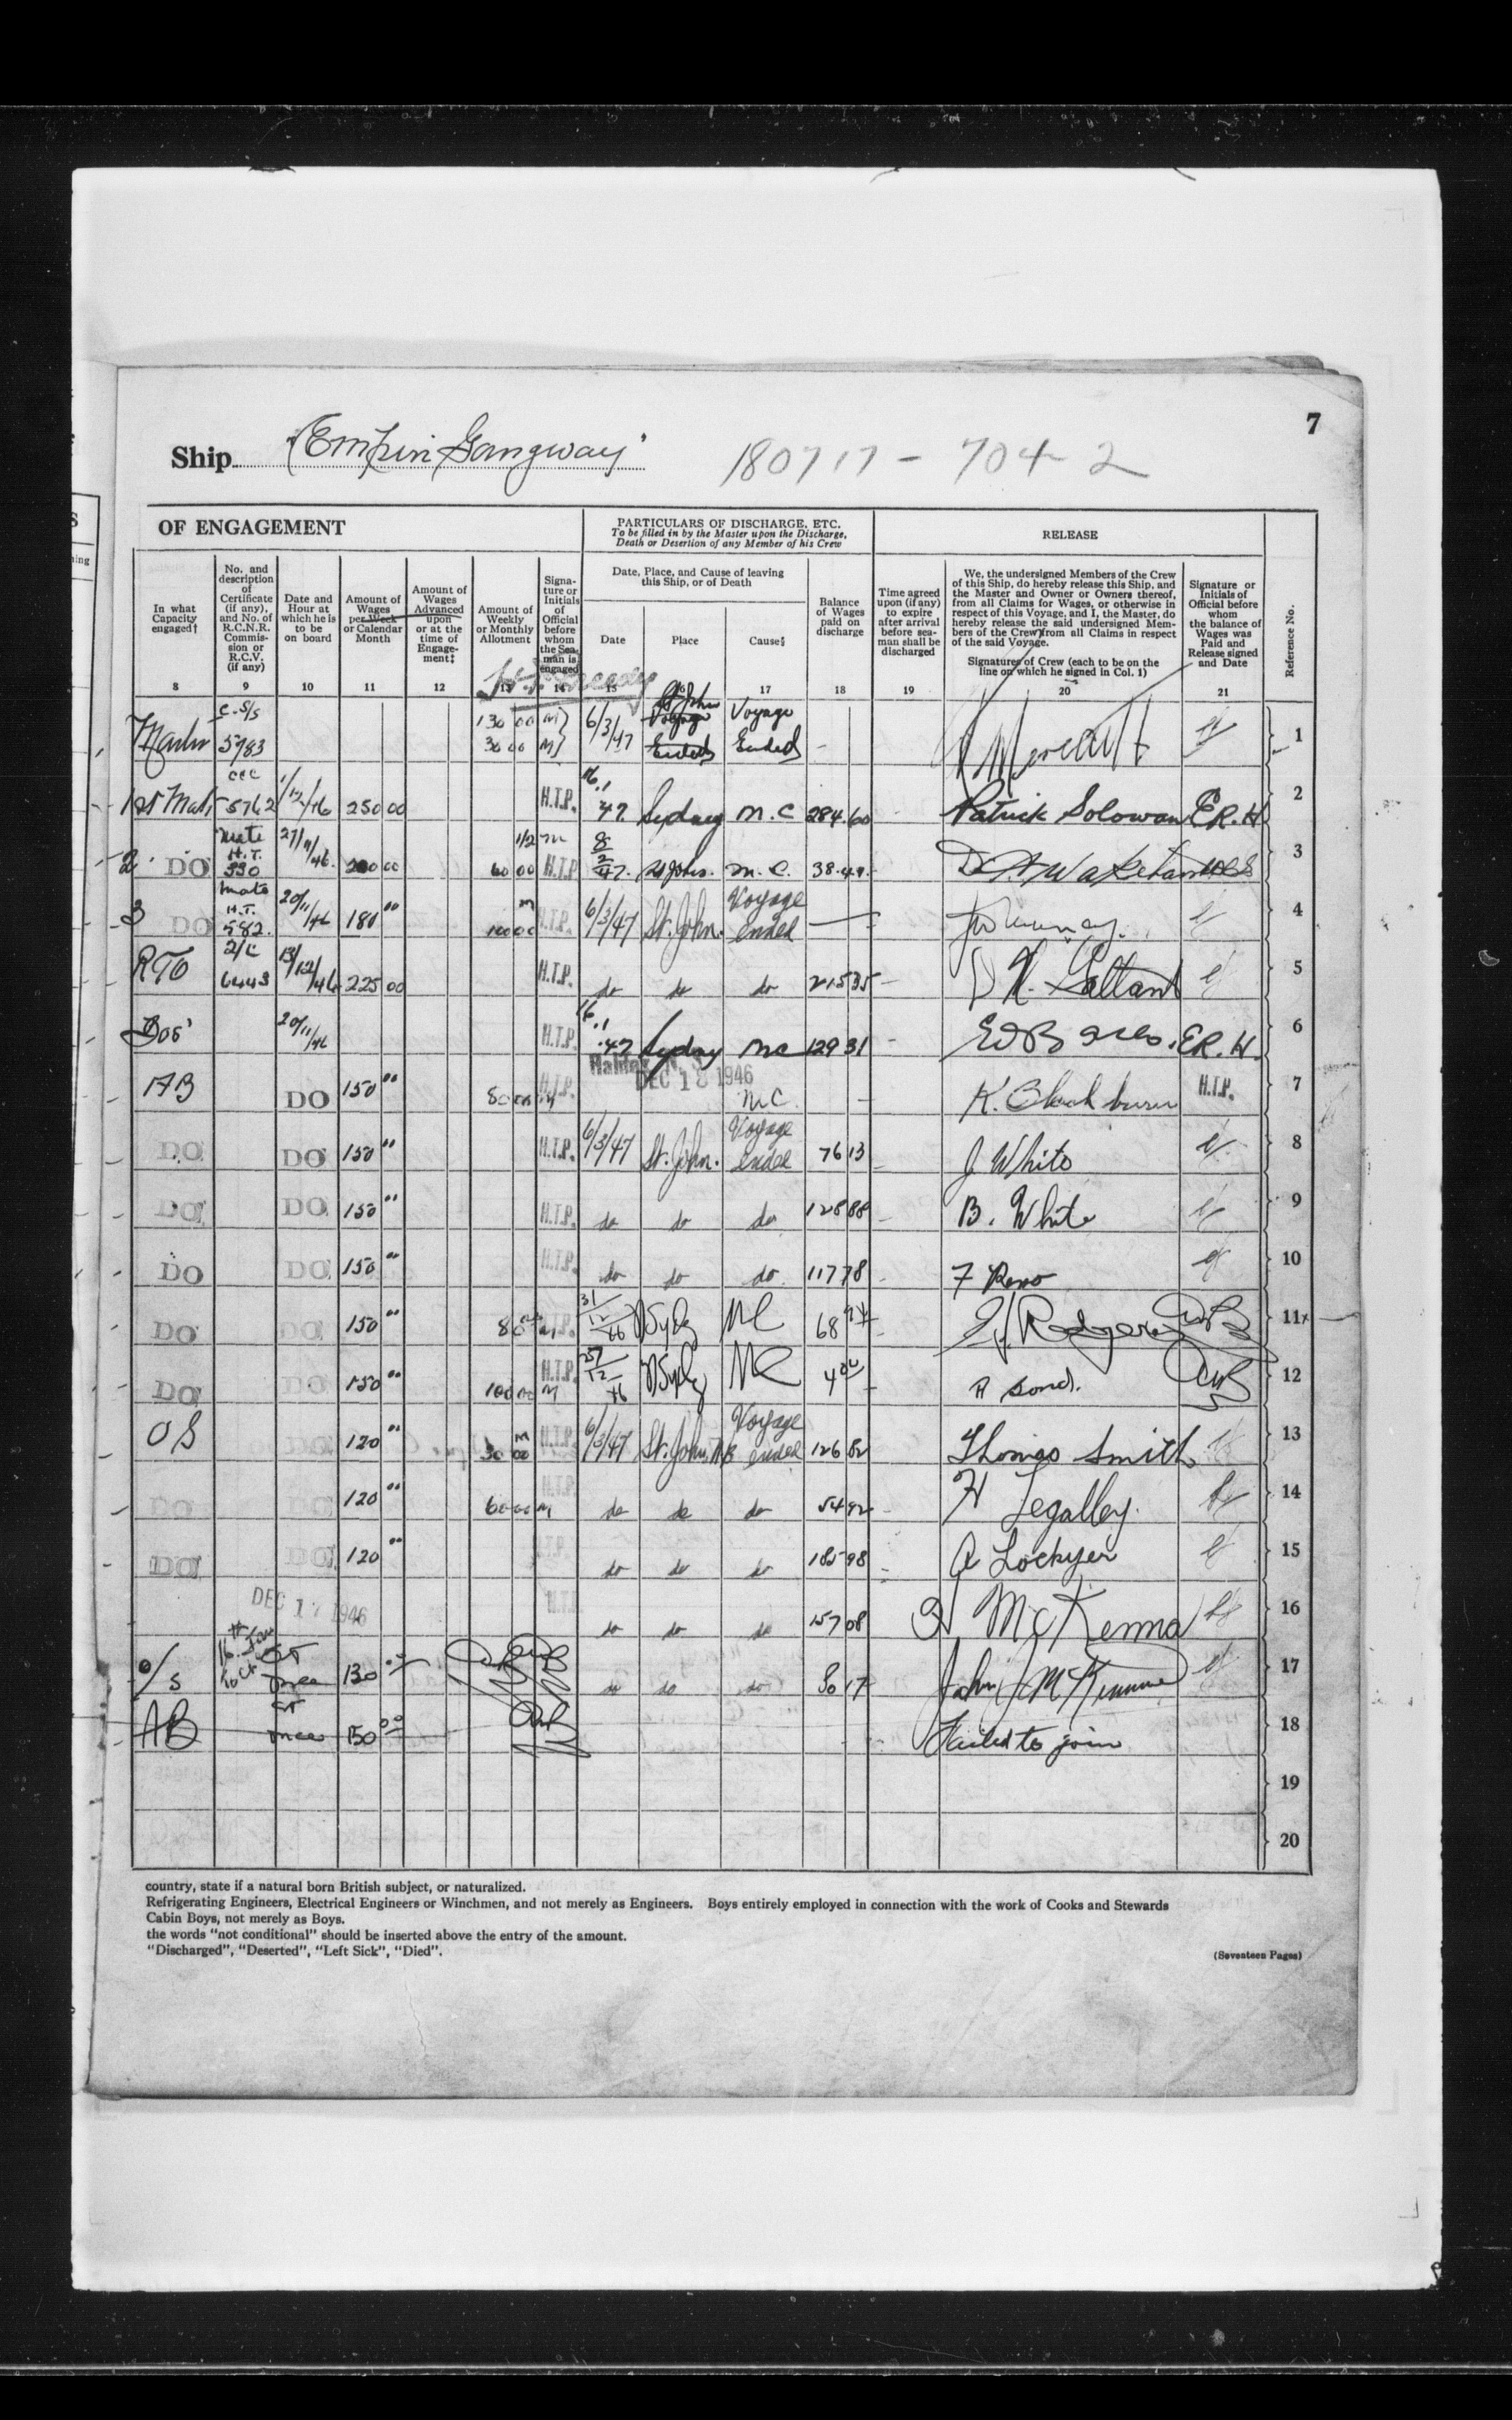 7
Ship "Empire Gangway" 180717 - 704-2
OF ENGAGEMENT
PARTICULARS OF DISCHARGE, ETC.
To be filled in by the Master upon the Discharge,
Death or Desertion of any Member of his Crew
RELEASE
In what Capacity engaged†
No. and description of Certificate (if any), and No. of R.C.N.R. Commission or R.C.V. (if any)
Date and Hour at which he is to be on board
Amount of Wages per Week or Calendar Month
Amount of Wages Advanced upon or at the time of Engagement‡
Amount of Weekly or Monthly Allotment
Signature or Initials of Official before whom the Seaman is engaged
Date, Place, and Cause of leaving this Ship, or of Death
Date
Place
Cause§
Balance of Wages paid on discharge
Time agreed upon (if any) to expire after arrival before seaman shall be discharged
We, the undersigned Members of the Crew of this Ship, do hereby release this Ship, and the Master and Owner or Owners thereof, from all Claims for Wages, or otherwise in respect of this Voyage, and I, the Master, do hereby release the said undersigned Members of the Crew from all Claims in respect of the said Voyage.
Signatures of Crew (each to be on the line on which he signed in Col. 1)
Signature or Initials of Official before whom the balance of Wages was Paid and Release signed and Date
Reference No.
8 9 10 11 12 13 14 15 16 17 18 19 20 21
Master C.S/S 5783 130 00 M 30 00 M 6/3/47 St John Voyage Ended Voyage Ended - 1
1st Mate 5762 1/12/46 250 00 H.T.P. 16.1 47 Sydney M.C 284.60 Patrick Solowan E.R.H 2
2 DO Mate H.T. 330 27/11/46. 200 00 1/2 M 60 00 H.T.P 8/2/47. St John. M.C. 38.49. 3
3 DO Mate H.T. 582. 20/11/46 180 00 M 100 00 H.T.P. 6/3/47 St. John. Voyage ended 4
RTO 2/C 6443 13/12/46 225 00 H.T.P. do do do 215 35 Gallant 5
Bos' 20/11/46 H.T.P. 16.1.47 Sydney MC 129 31 E.R.H. 6
AB DO 150 00 80 00 M H.T.P. Halifax, N.S. DEC 18 1946 M.C. K. Blackburn H.T.P. 7
DO DO 150 00 H.T.P. 6/3/47 St. John. Voyage ended 76 13 J White 8
DO DO 150 00 H.T.P. do do do 128 88 B. White 9
DO DO 150 00 H.T.P. do do do 117 78 10
DO DO 150 00 80 00 M H.T.P. 31/12/46 NSydy MC 68 Rodgers 11x
DO DO 150 00 100 00 M H.T.P. 27/12/46 NSydy MC 4 00 12
OS DO 120 00 M 30 00 H.T.P. 6/3/47 St. John, N.B Voyage ended 126 82 Thomas Smith 13
DO DO 120 00 60 00 M H.T.P. do do do 54 92 H Legalley. 14
DO DO 120 00 H.T.P. do do do 185 98 A Lockyer 15
DEC 17 1946 H.T.P. do do do 157 08 McKenna 16
O/S 16th Jan at once 130 00 do do do 80 17 John J McKinnon 17
AB at once 150 00 Failed to join 18
19
20
country, state if a natural born British subject, or naturalized.
Refrigerating Engineers, Electrical Engineers or Winchmen, and not merely as Engineers. Boys entirely employed in connection with the work of Cooks and Stewards
Cabin Boys, not merely as Boys.
the words "not conditional" should be inserted above the entry of the amount.
"Discharged", "Deserted", "Left Sick", "Died".
(Seventeen Pages)